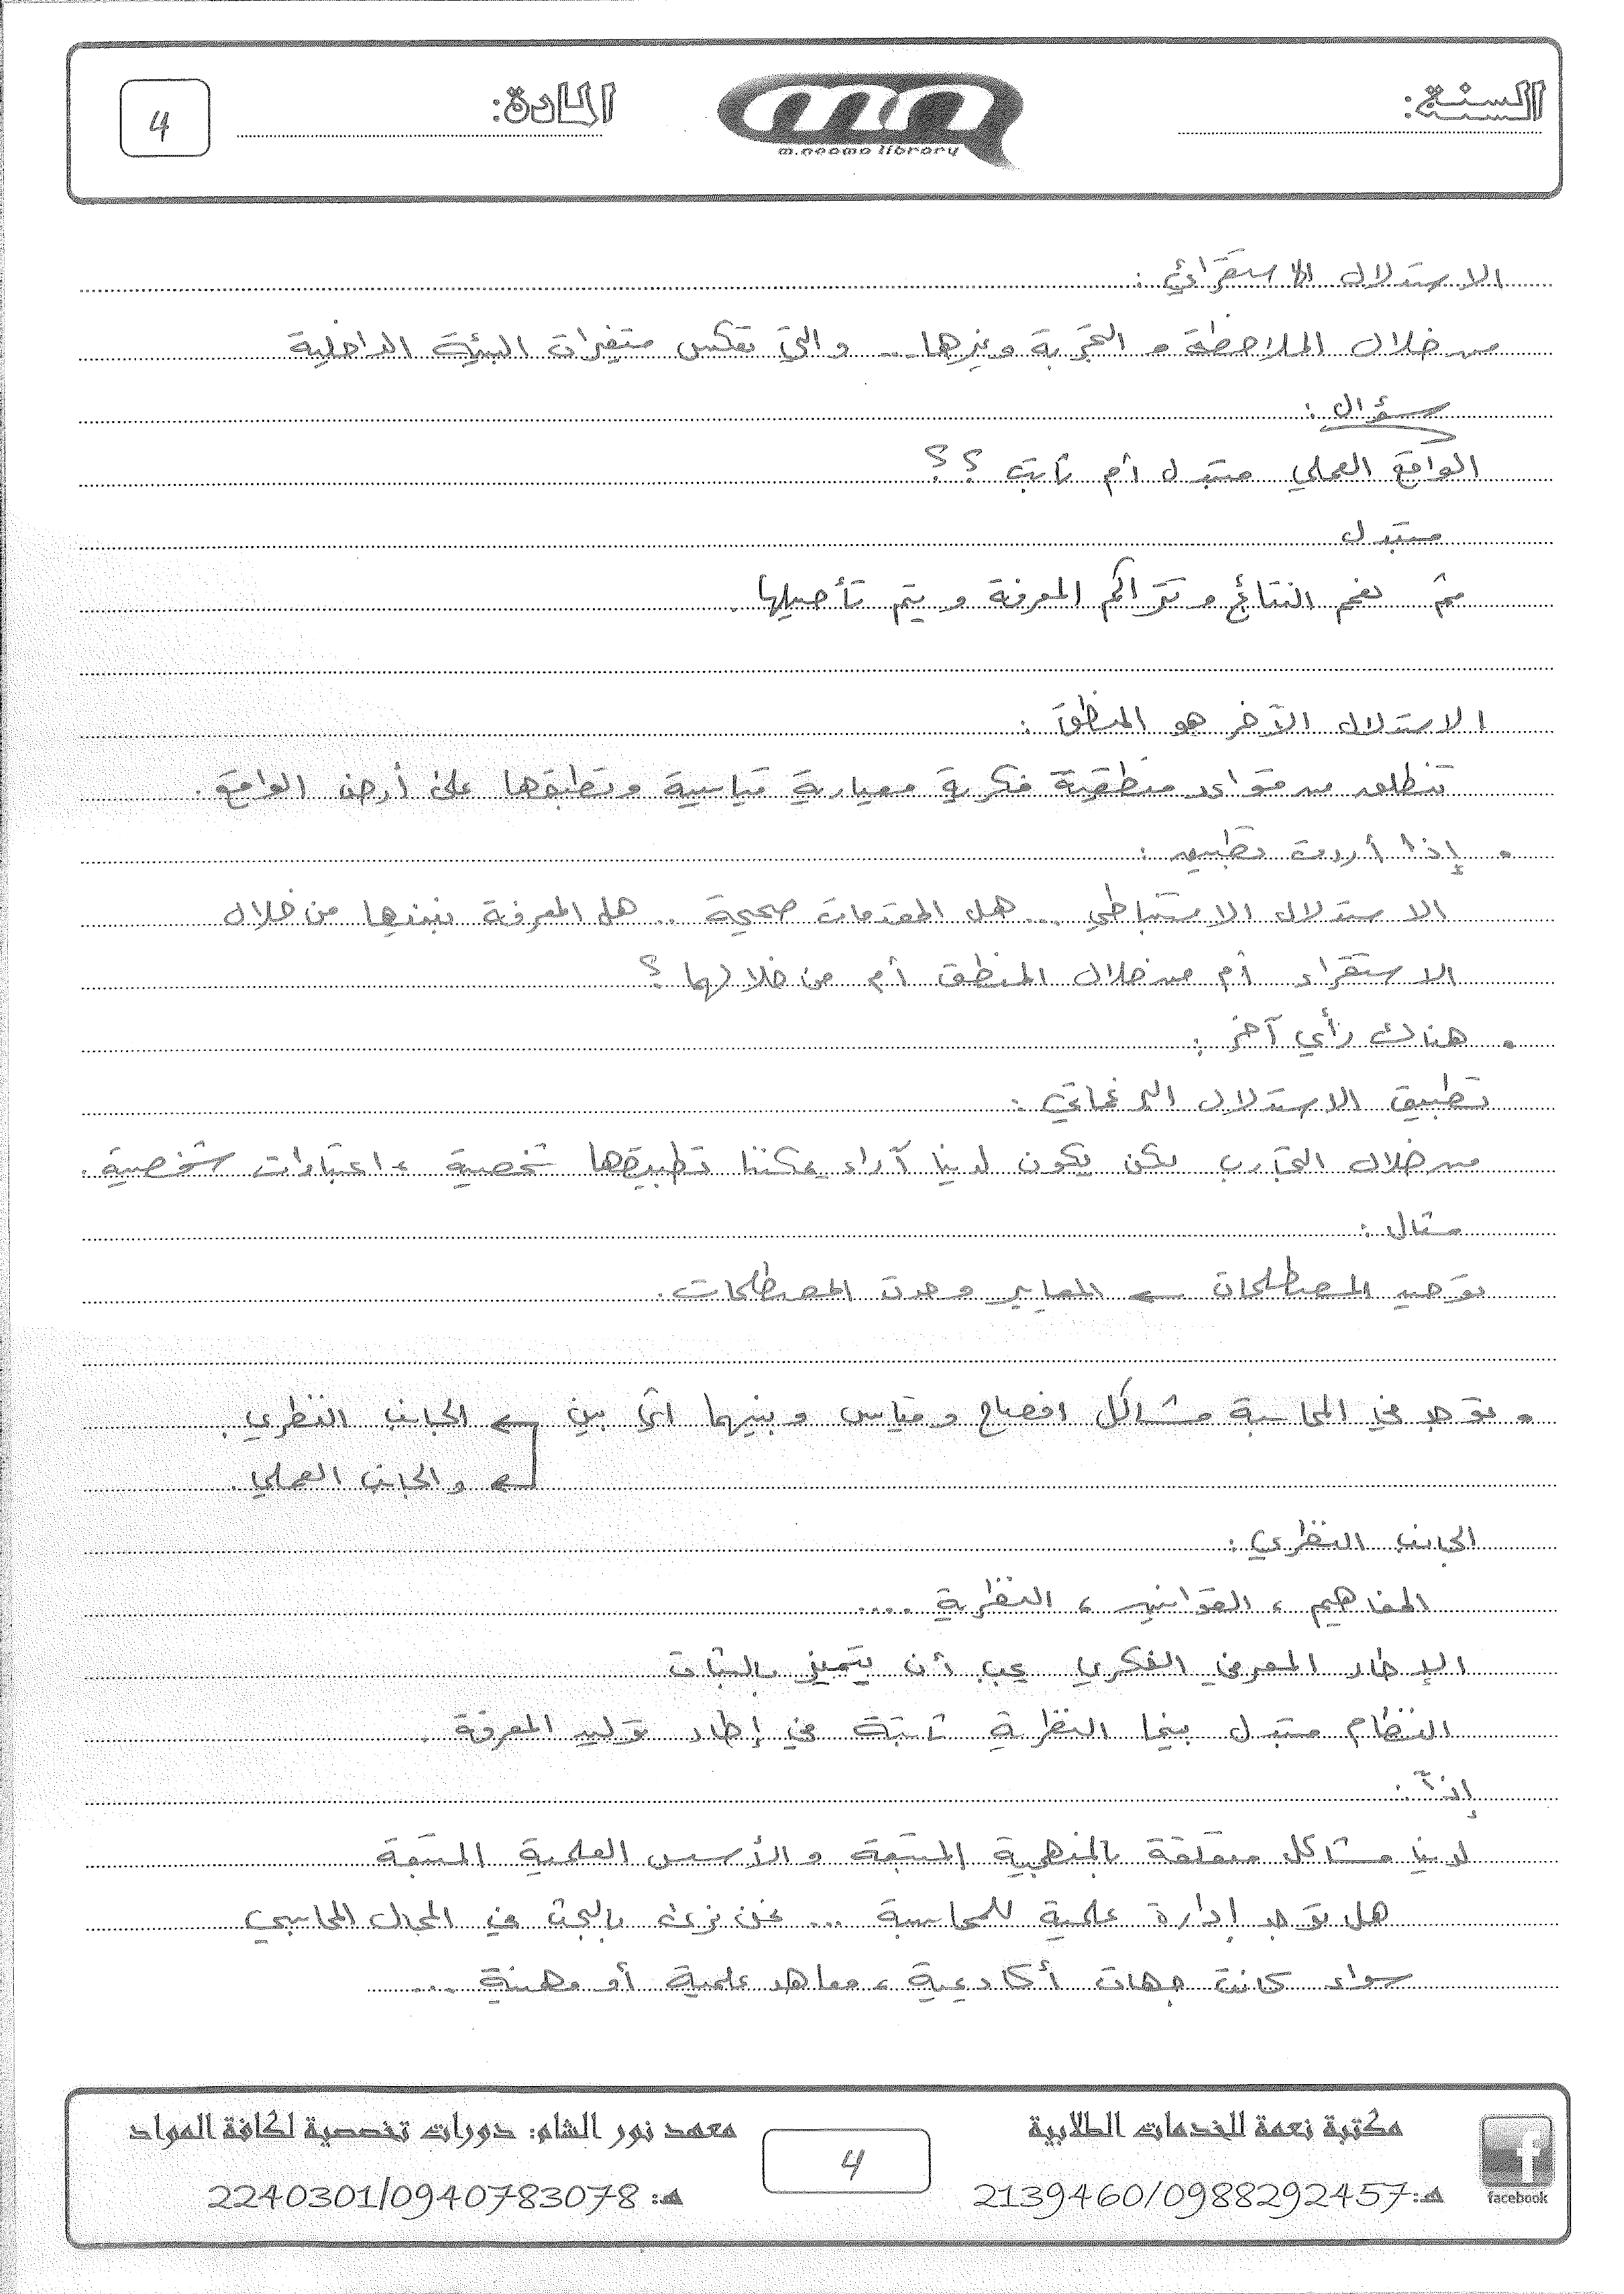 السنة:
m.neama library
المادة:
4
الاستدلال الاستقرائي :
من خلال الملاحظة و التجربة وغيرها... و التي تعكس متغيرات البيئة الداخلية
سؤال :
الواقع العملي متبدل أم ثابت ؟؟
متبدل
ثم نعمم النتائج و تتراكم المعرفة و يتم تأصيلها .
الاستدلال الآخر هو المنطق :
تنطلق من قواعد منطقية فكرية معيارية قياسية وتطبقها على أرض الواقع .
• إذا أردت تطبيق :
الاستدلال الاستنباطي ... هل المقدمات صحيحة .. هل المعرفة نبنيها من خلال
الاستقراء أم من خلال المنطق أم من خلالهما ؟
• هناك رأي آخر :
تطبيق الاستدلال البرغماتي :
من خلال التجارب يكون لدينا آراء يمكننا تطبيقها شخصية ، اعتبارات شخصية .
مثال :
توحيد المصطلحات ← المعايير وحدت المصطلحات .
• توجد في المحاسبة مشاكل افصاح و قياس و بينهما أي بين ← الجانب النظري .
← والجانب العملي .
الجانب النظري :
المفاهيم ، القوانين ، النظرية ....
الإطار المعرفي الفكري يجب أن يتميز بالثبات
النظام متبدل بينما النظرية ثابتة في إطار توليد المعرفة .
إذاً :
لدينا مشاكل متعلقة بالمنهجية المتبعة و الأسس العلمية المتبعة
هل توجد إدارة علمية للمحاسبة ... نحن نرغب بالبحث في المجال المحاسبي
سواء كانت جهات أكاديمية ، معاهد علمية أو مهنية ....
مكتبة نعمة للخدمات الطلابية
هـ: 2139460/0988292457
facebook
4
معهد نور الشام: دورات تخصصية لكافة المواد
هـ: 2240301/0940783078